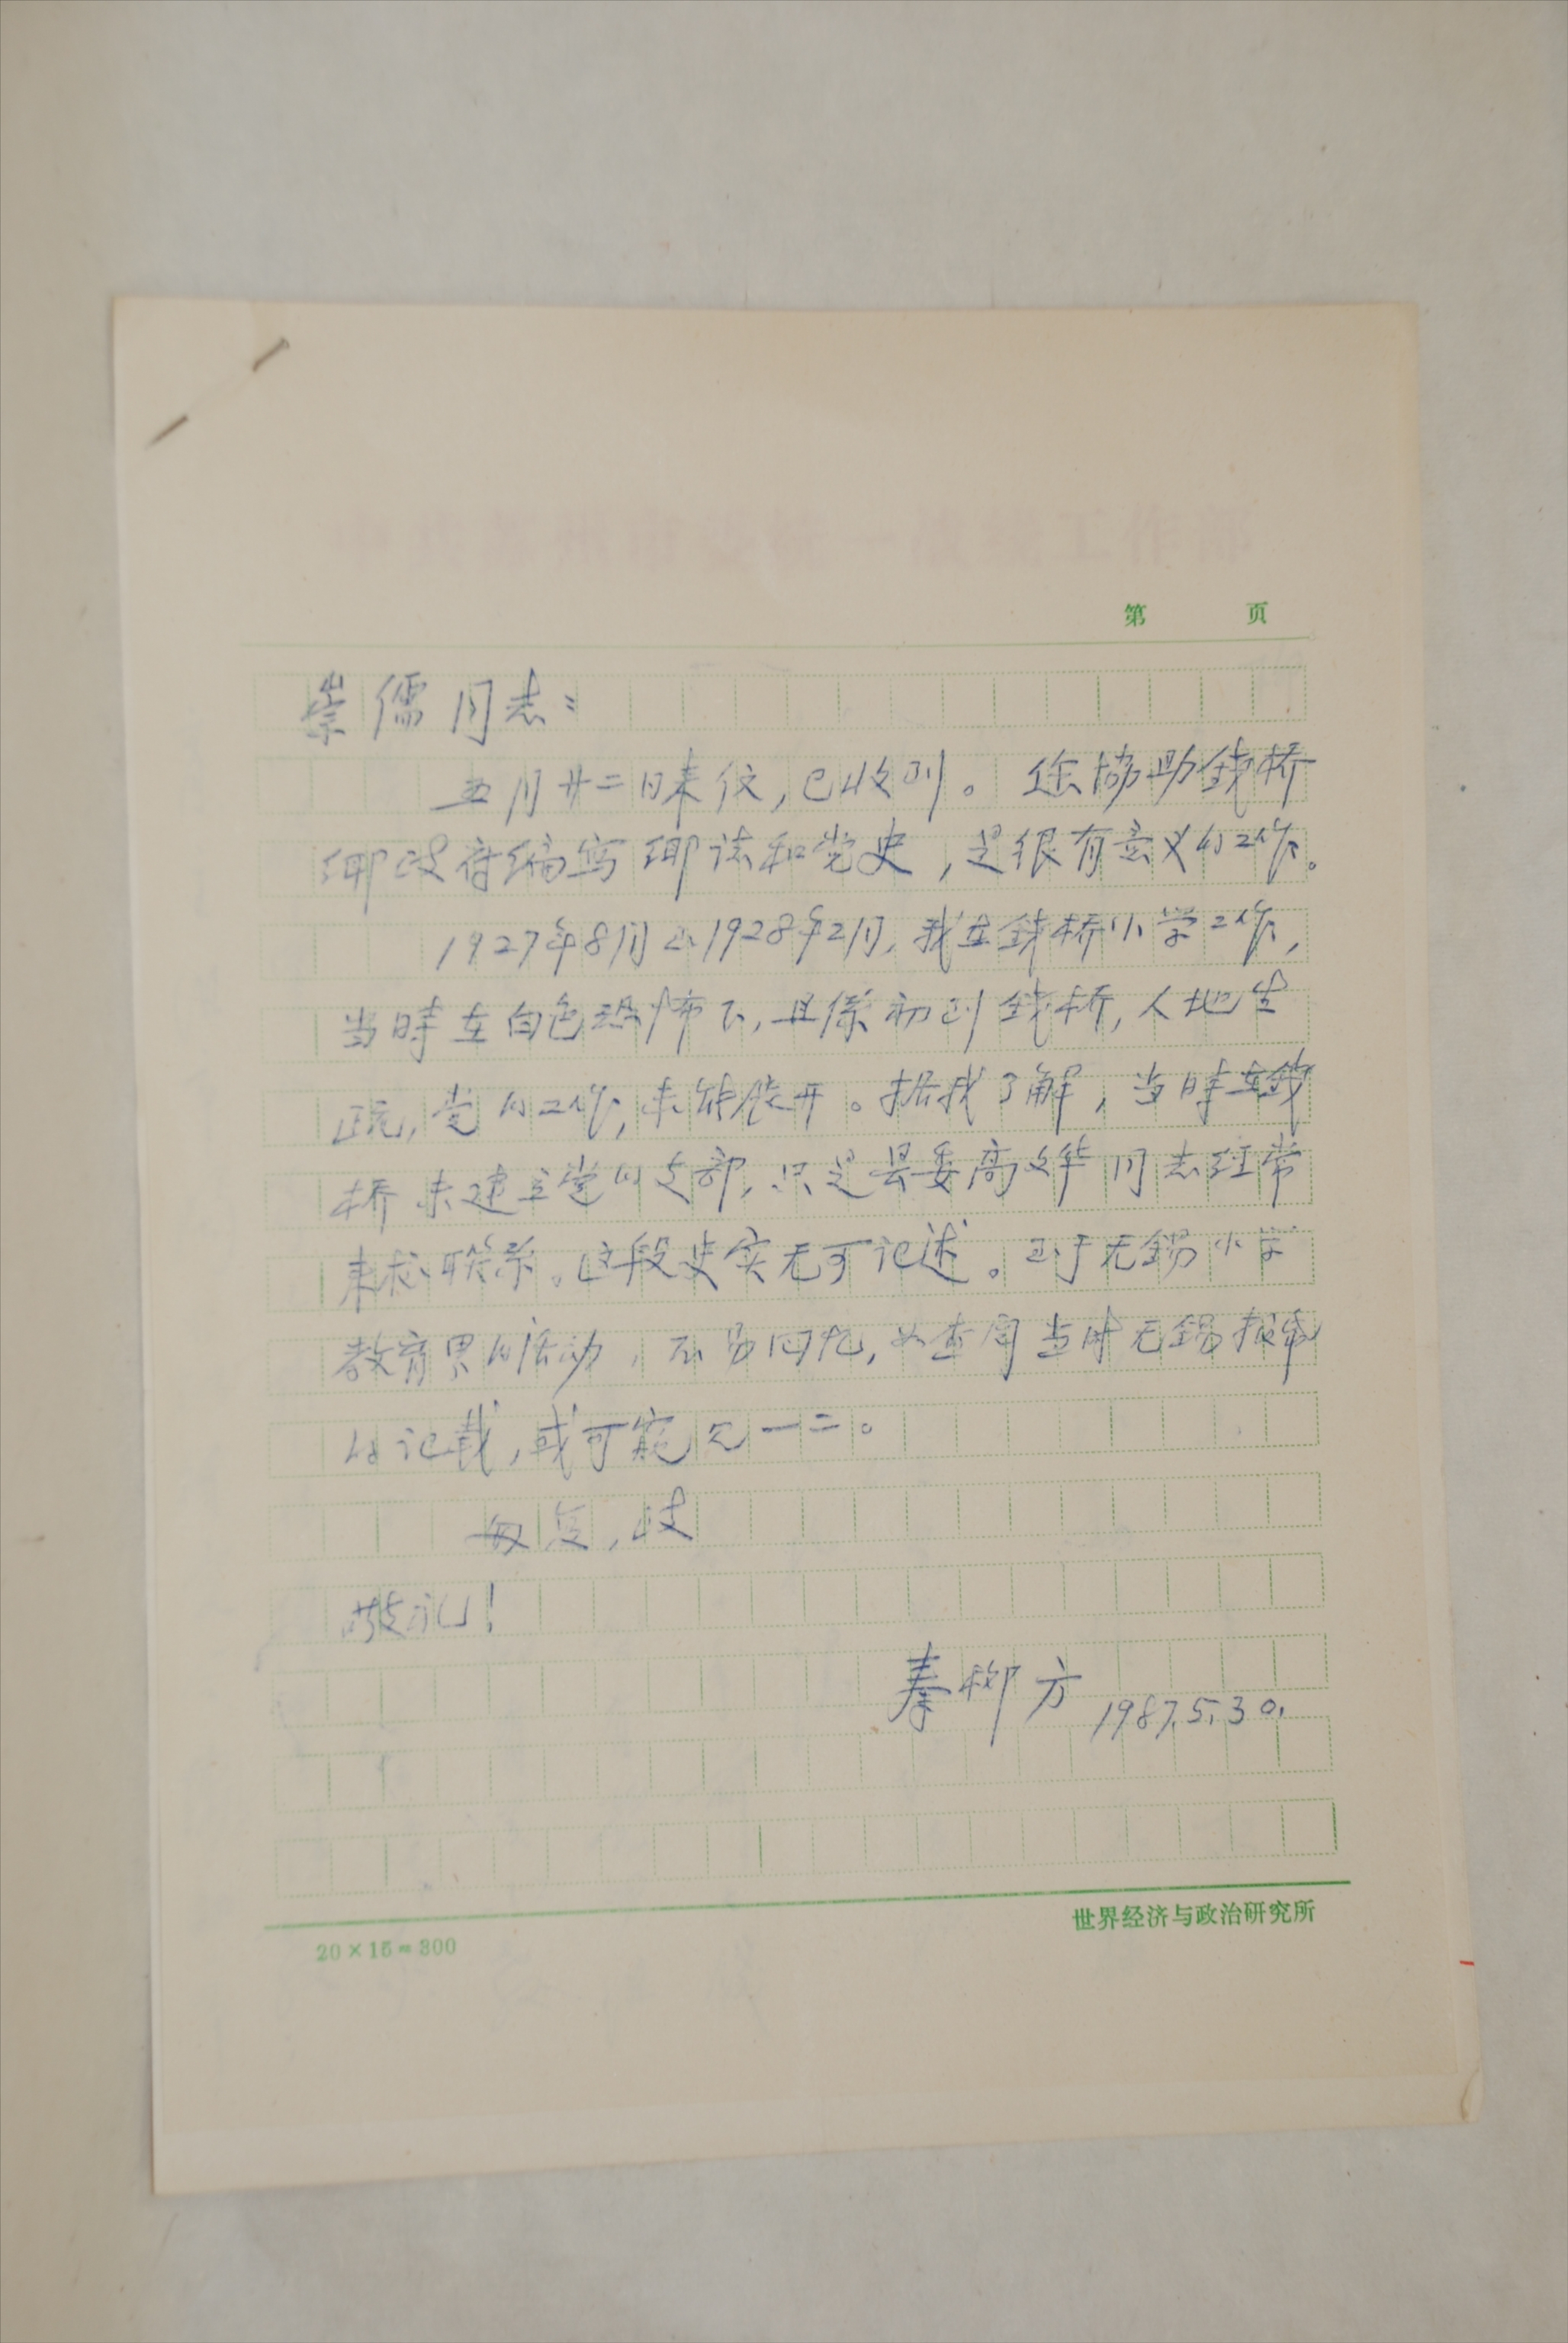 第 页
崇儒同志：
五月廿二日来信，已收到。您协助钱桥
乡政府编写乡志和党史，是很有意义的工作。
1927年8月至1928年2月，我在钱桥小学工作，
当時在白色恐怖下，且係初到钱桥，人地生
疏，党的工作，未能展开。据我了解，当時在钱
桥未建立党的支部，只是县委高文华同志经常
来我联系。这段史实无可记述。至于无锡小学
教育界的活动，不易回忆，如查阅当时无锡报纸
的记载，或可窥见一二。
匆复，致
敬礼！
秦柳方 1987.5.30.
世界经济与政治研究所
20×15=300